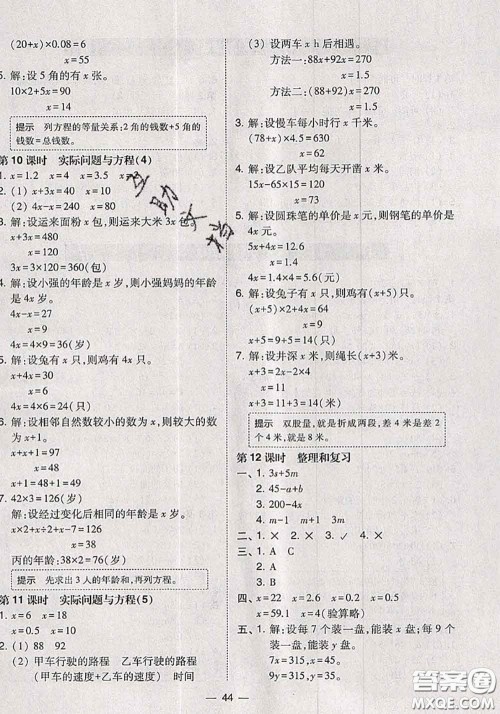 (20+x)×0.08=6
x=55
5. 解:设 5 角的有 x 张。
10×2+5x=90
x=14
提示 列方程的等量关系:2 角的钱数+5 角的
钱数=总钱数。
第 10 课时 实际问题与方程(4)
1. x=1.2 x=4 x=3.5 x=0.5
2. (1) x+3x=40 x=10
(2) 4x-x=240 x=80
3. 解:设运来面粉 x 包,则运来大米 3x 包。
x+3x=480
x=120
3x=3×120=360(包)
解:设小强的年龄是 x 岁,则小强妈妈的年龄是
4x 岁。
4x-x=27
x=9
4x=4×9=36(岁)
5. 解:设兔有 x 只,则鸡有 4x 只。
x+4x=30
x=6
4x=4×6=24(只)
解:设相邻自然数较小的数为 x,则较大的数为
x+1。
x+x+1=97
x=48
x+1=48+1=49
42×3=126(岁)
解:设经过变化后相同的年龄为 x 岁。
x-6+x÷2+x-7=126
x=38
丙的年龄:38×2=76(岁)
提示 先求出 3 人的年龄和,再列方程。
第 11 课时 实际问题与方程(5)
1. x=6 x=18
x=0.8 x=90
2. (1) 50 88
(2) 甲车行驶的路程 乙车行驶的路程
(甲车的速度+乙车的速度) 时间
(3) 设两车 x h 后相遇。
方法一:88x+92x=270
x=1.5
方法二:(88+92)x=270
x=1.5
3. 解:设慢车每小时行 x 千米。
(78+x)×4.5=630
x=62
4. 解:设乙队平均每天开凿 x 米。
15x-65×15=210
x=79
5. 解:设圆珠笔的单价是 x 元,则钢笔的单价是
4x 元。
5x+4x=12.6
x=1.4
4x=1.4×4=5.6(元)
6. 解:设兔子有 x 只,则鸡有(x+5)只。
4x+2(x+5)=64
x=9
x+5=9+5=14(只)
7. 解:设井深 x 米,则绳长(x+3)米。
x+3=2x-2×4
x=11
x+3=11+3=14(米)
提示 双股量,就是折成两段,差 4 米是差 2
个 4 米,就是 8 米。
第 12 课时 整理和复习
一、1. 3s+5m
2. 45-a+b
3. 200-4x
4. m-1 m+1 3m
二、1. × 2. × 3. × 4. √ 5. ×
三、1. A C
2. B
3. A
四、x=22 x=2.6 x=0.2
x=59.1 x=4(验算略)
五、解:设每 7 个装一盘,能装 x 盘;每 9 个装
一盘,能装 y 盘。
7x=315,x=45。
9y=315,y=35。
44
互助文档
答案圈
MXQE.COM